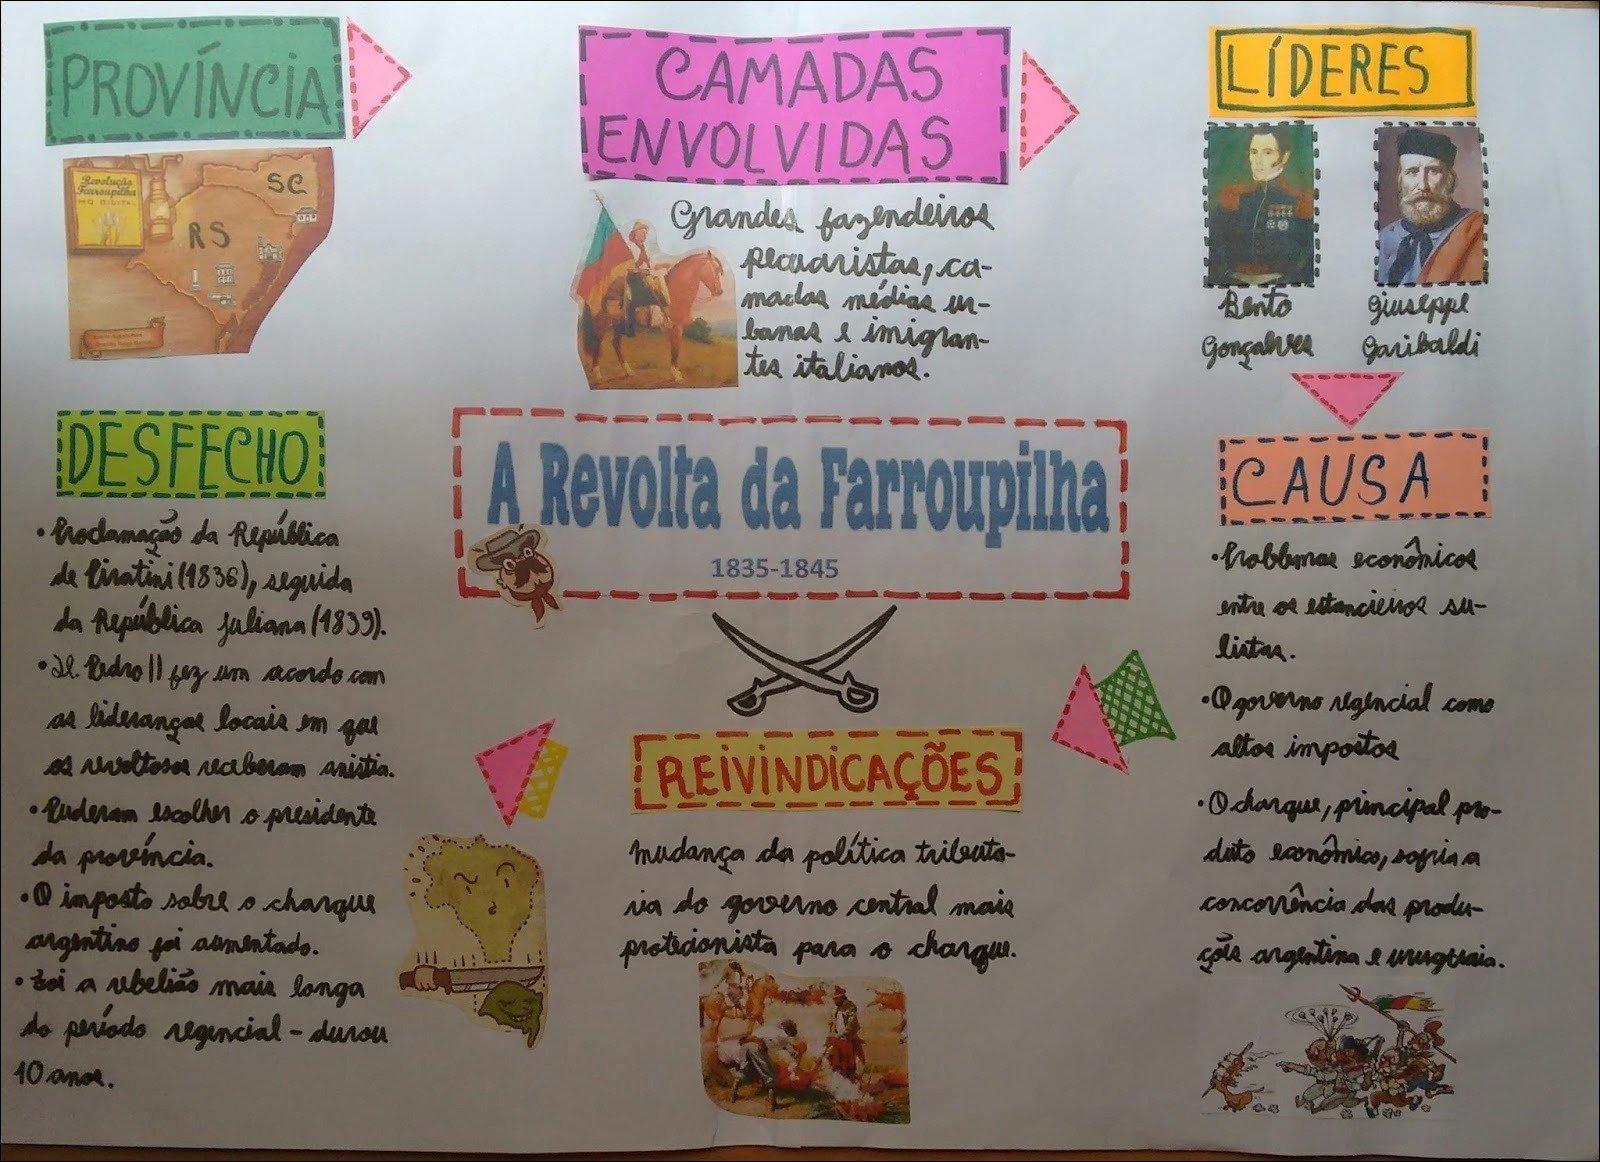 PROVÍNCIA
Revolução
Farroupilha
HQ DIGITAL
SC
RS
CAMADAS
ENVOLVIDAS
Grandes fazendeiros
pecuaristas, ca-
madas médias ur-
banas e imigran-
tes italianos.
LÍDERES
Bento
Gonçalves
Giuseppe
Garibaldi
A Revolta da Farroupilha
1835-1845
DESFECHO
• Proclamação da República
de Piratini (1836), seguida
da República Juliana (1839).
• D. Pedro II fez um acordo com
as lideranças locais em que
os revoltosos receberam anistia.
• Puderam escolher o presidente
da província.
• O imposto sobre o charque
argentino foi aumentado.
• Foi a rebelião mais longa
do período regencial - durou
10 anos.
REIVINDICAÇÕES
Mudança da política tributa-
ria do governo central mais
protecionista para o charque.
CAUSA
• Problemas econômicos
entre os estancieiros su-
listas.
• O governo regencial como
altos impostos
• O charque, principal pro-
duto econômico, sofria a
concorrência das produ-
ções argentina e uruguaia.